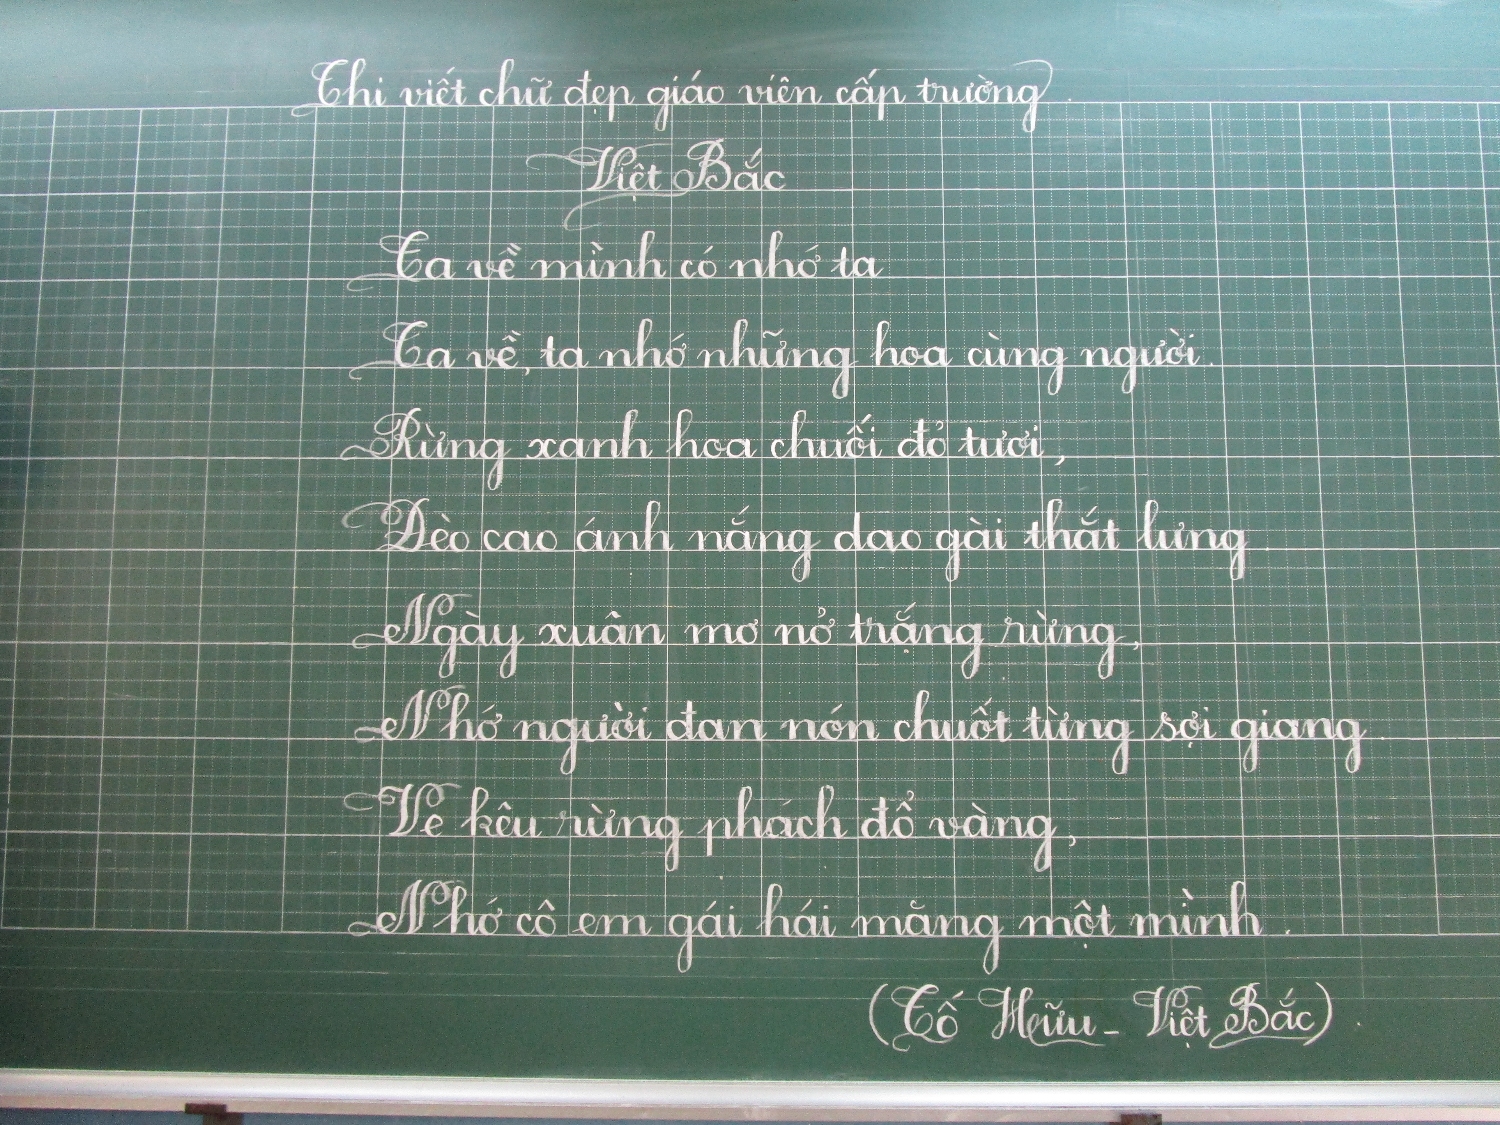 Thi viết chữ đẹp giáo viên cấp trường.
Việt Bắc
Ta về mình có nhớ ta
Ta về, ta nhớ những hoa cùng người.
Rừng xanh hoa chuối đỏ tươi,
Đèo cao ánh nắng dao gài thắt lưng.
Ngày xuân mơ nở trắng rừng,
Nhớ người đan nón chuốt từng sợi giang.
Ve kêu rừng phách đổ vàng,
Nhớ cô em gái hái măng một mình.
(Tố Hữu - Việt Bắc)